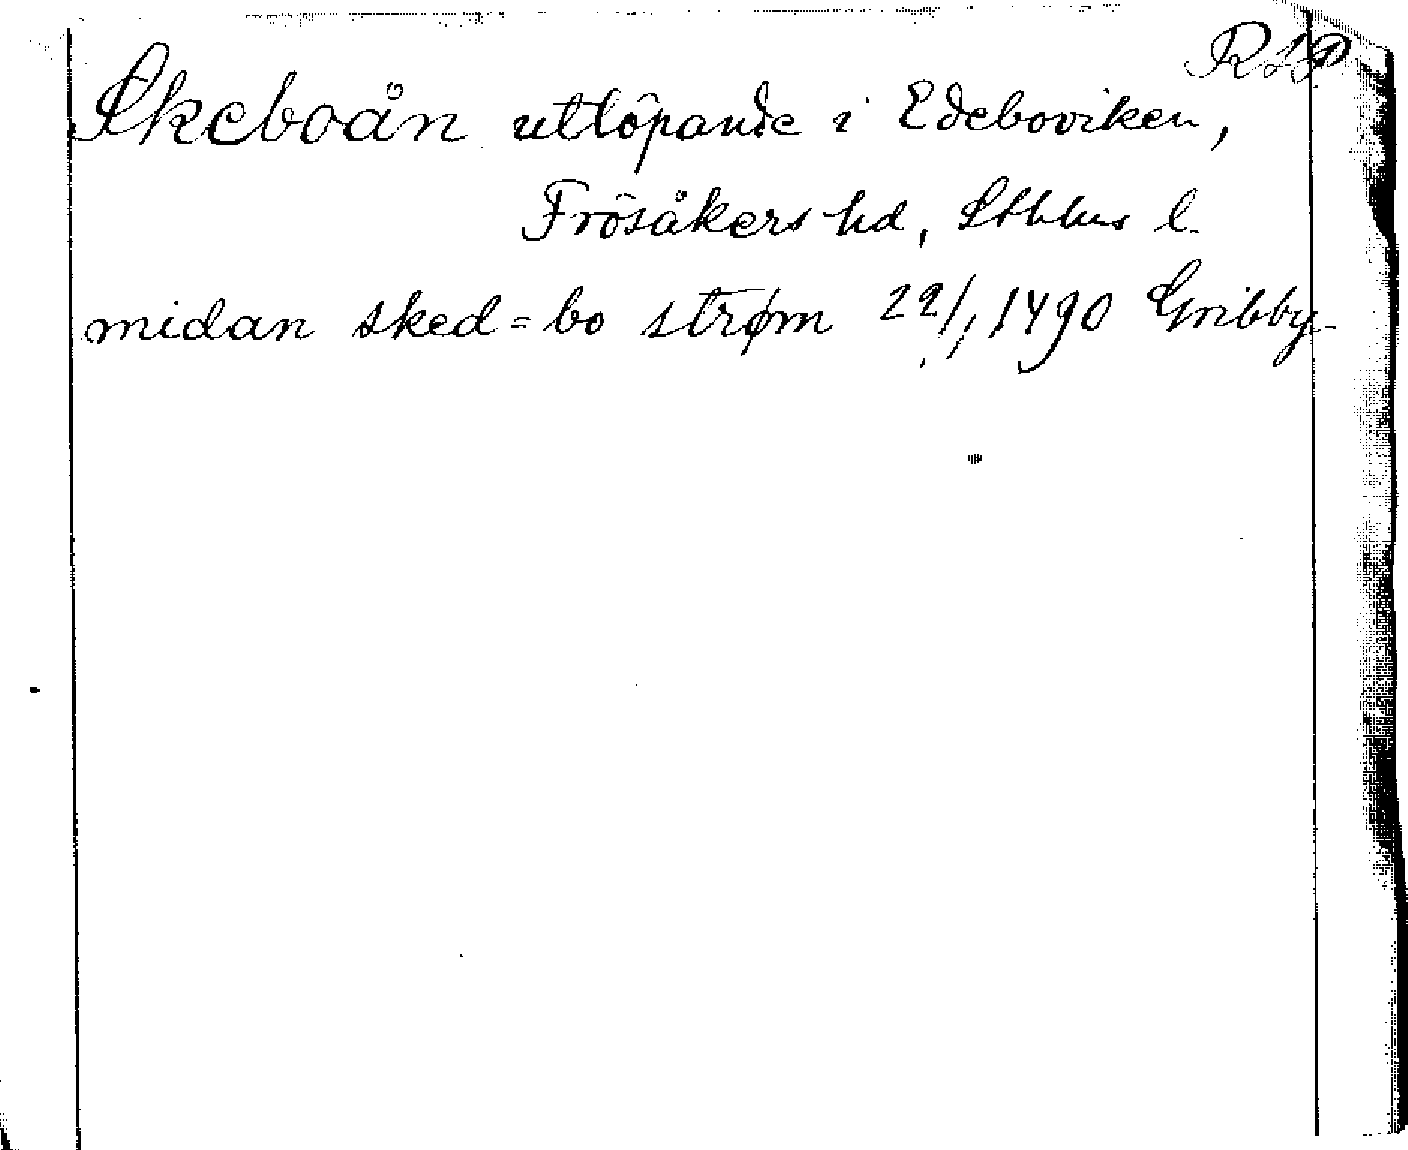 RAP
Skeboån utlöpande i Edeboviken,
Frösåkers hd, Sthlms l.
midan sked=bo strøm 22/1 1490 Gribby-